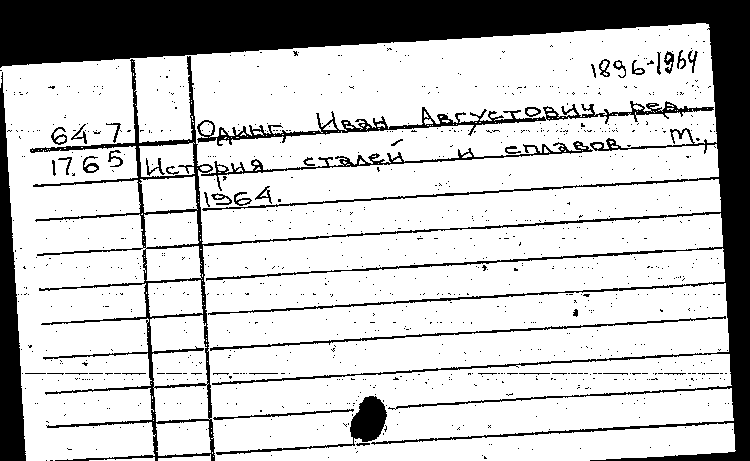 1896-1964
64-7 Одинг, Иван Августович, ред.
1765 История сталей и сплавов. М.,
1964.